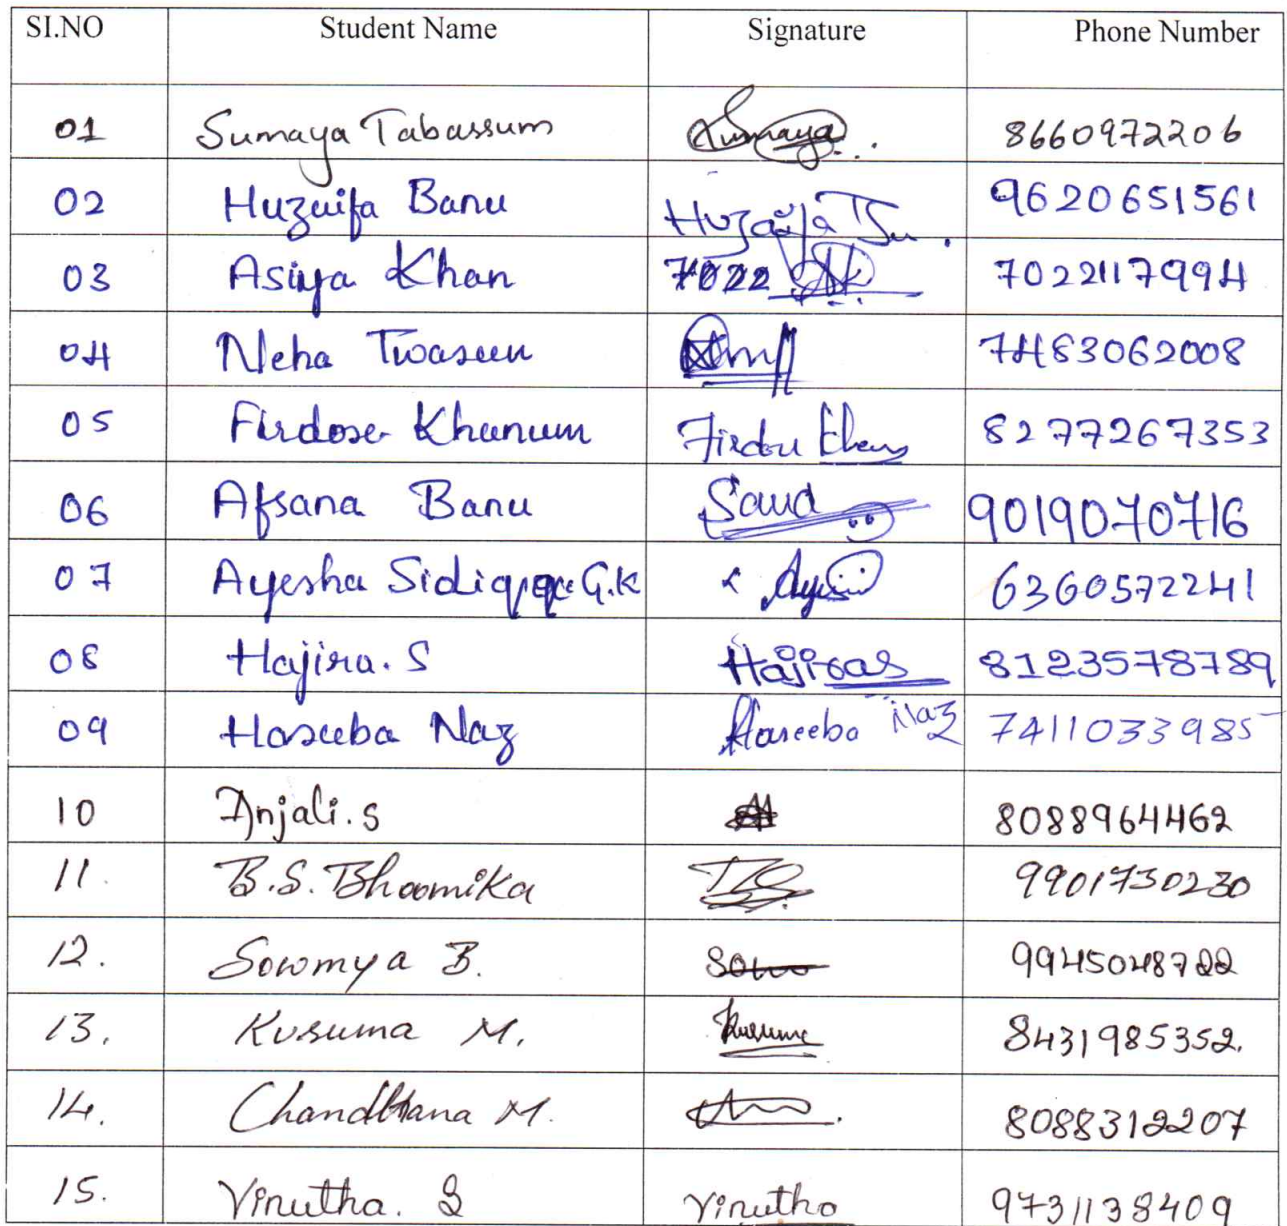 SI.NO Student Name Signature Phone Number
01 Sumaya Tabassum Sumaya 8660972206
02 Huzaifa Banu Huzaifa 9620651561
03 Asiya Khan 7022 7022117994
04 Neha Twaseen 7483062008
05 Firdose Khanum 8277267353
06 Afsana Banu Sana 9019070716
07 Ayesha Sidiqqa G.K 6360572241
08 Hajira. S Hajiras 8123578789
09 Haseeba Naz Haseeba Naz 7411033985
10 Anjali.S 8088964462
11. B.S. Bhoomika 9901730230
12. Sowmya B. Sow 9945048722
13. Kusuma M. Kusuma 8431985352.
14. Chandhana M. 8088312207
15. Vinutha. S Vinutha 9731138409